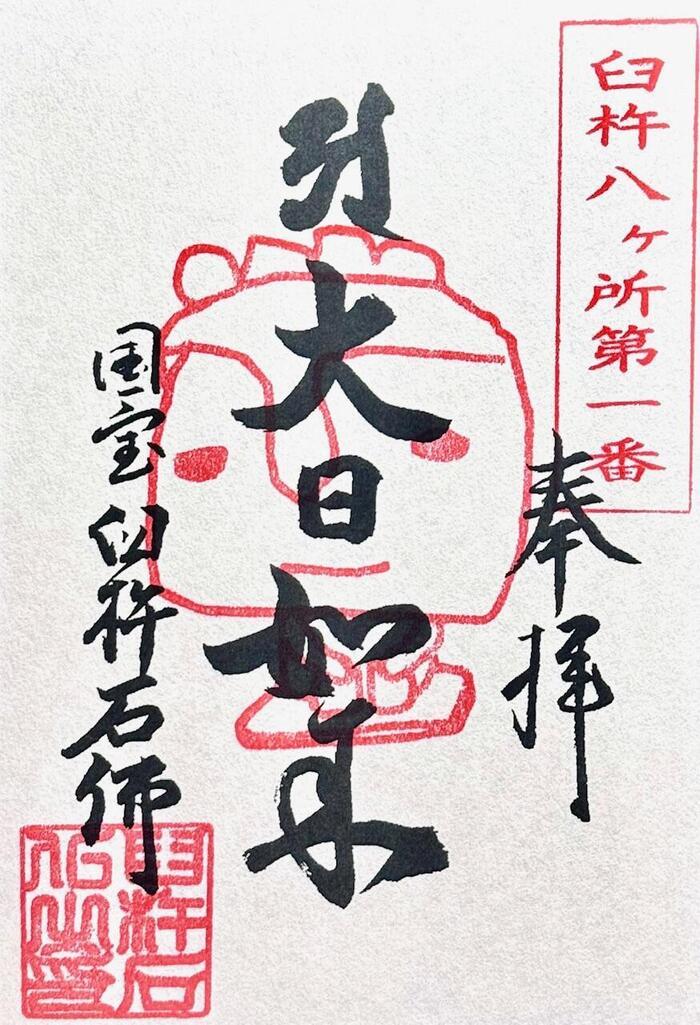 臼杵八ヶ所第一番
奉拝
大日如来
国宝臼杵石仏
臼杵石仏之印